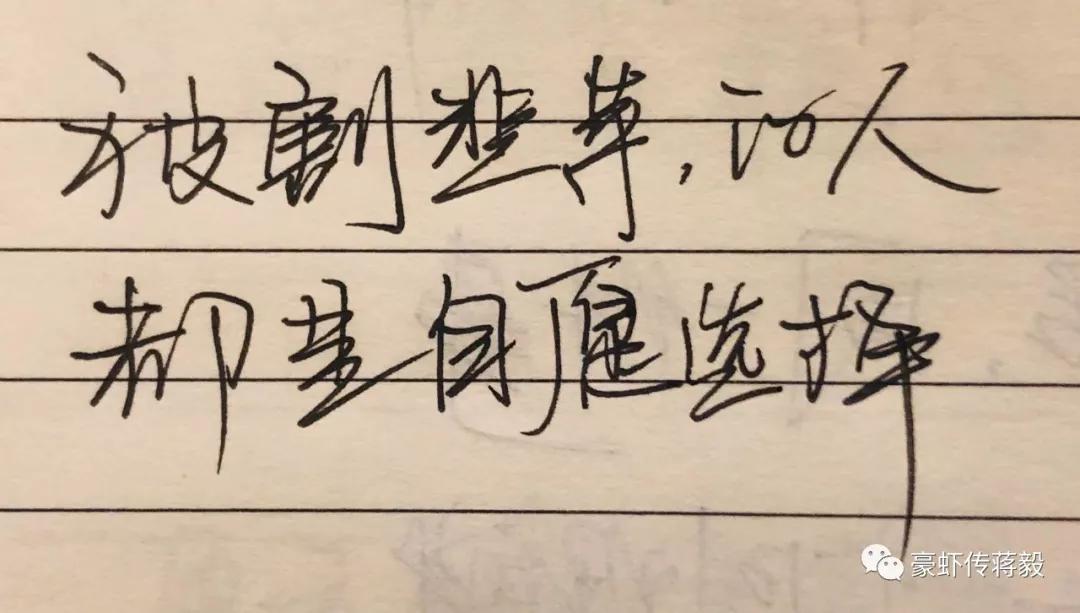 被割韭菜，人
都是自愿选择
豪虾传蒋毅